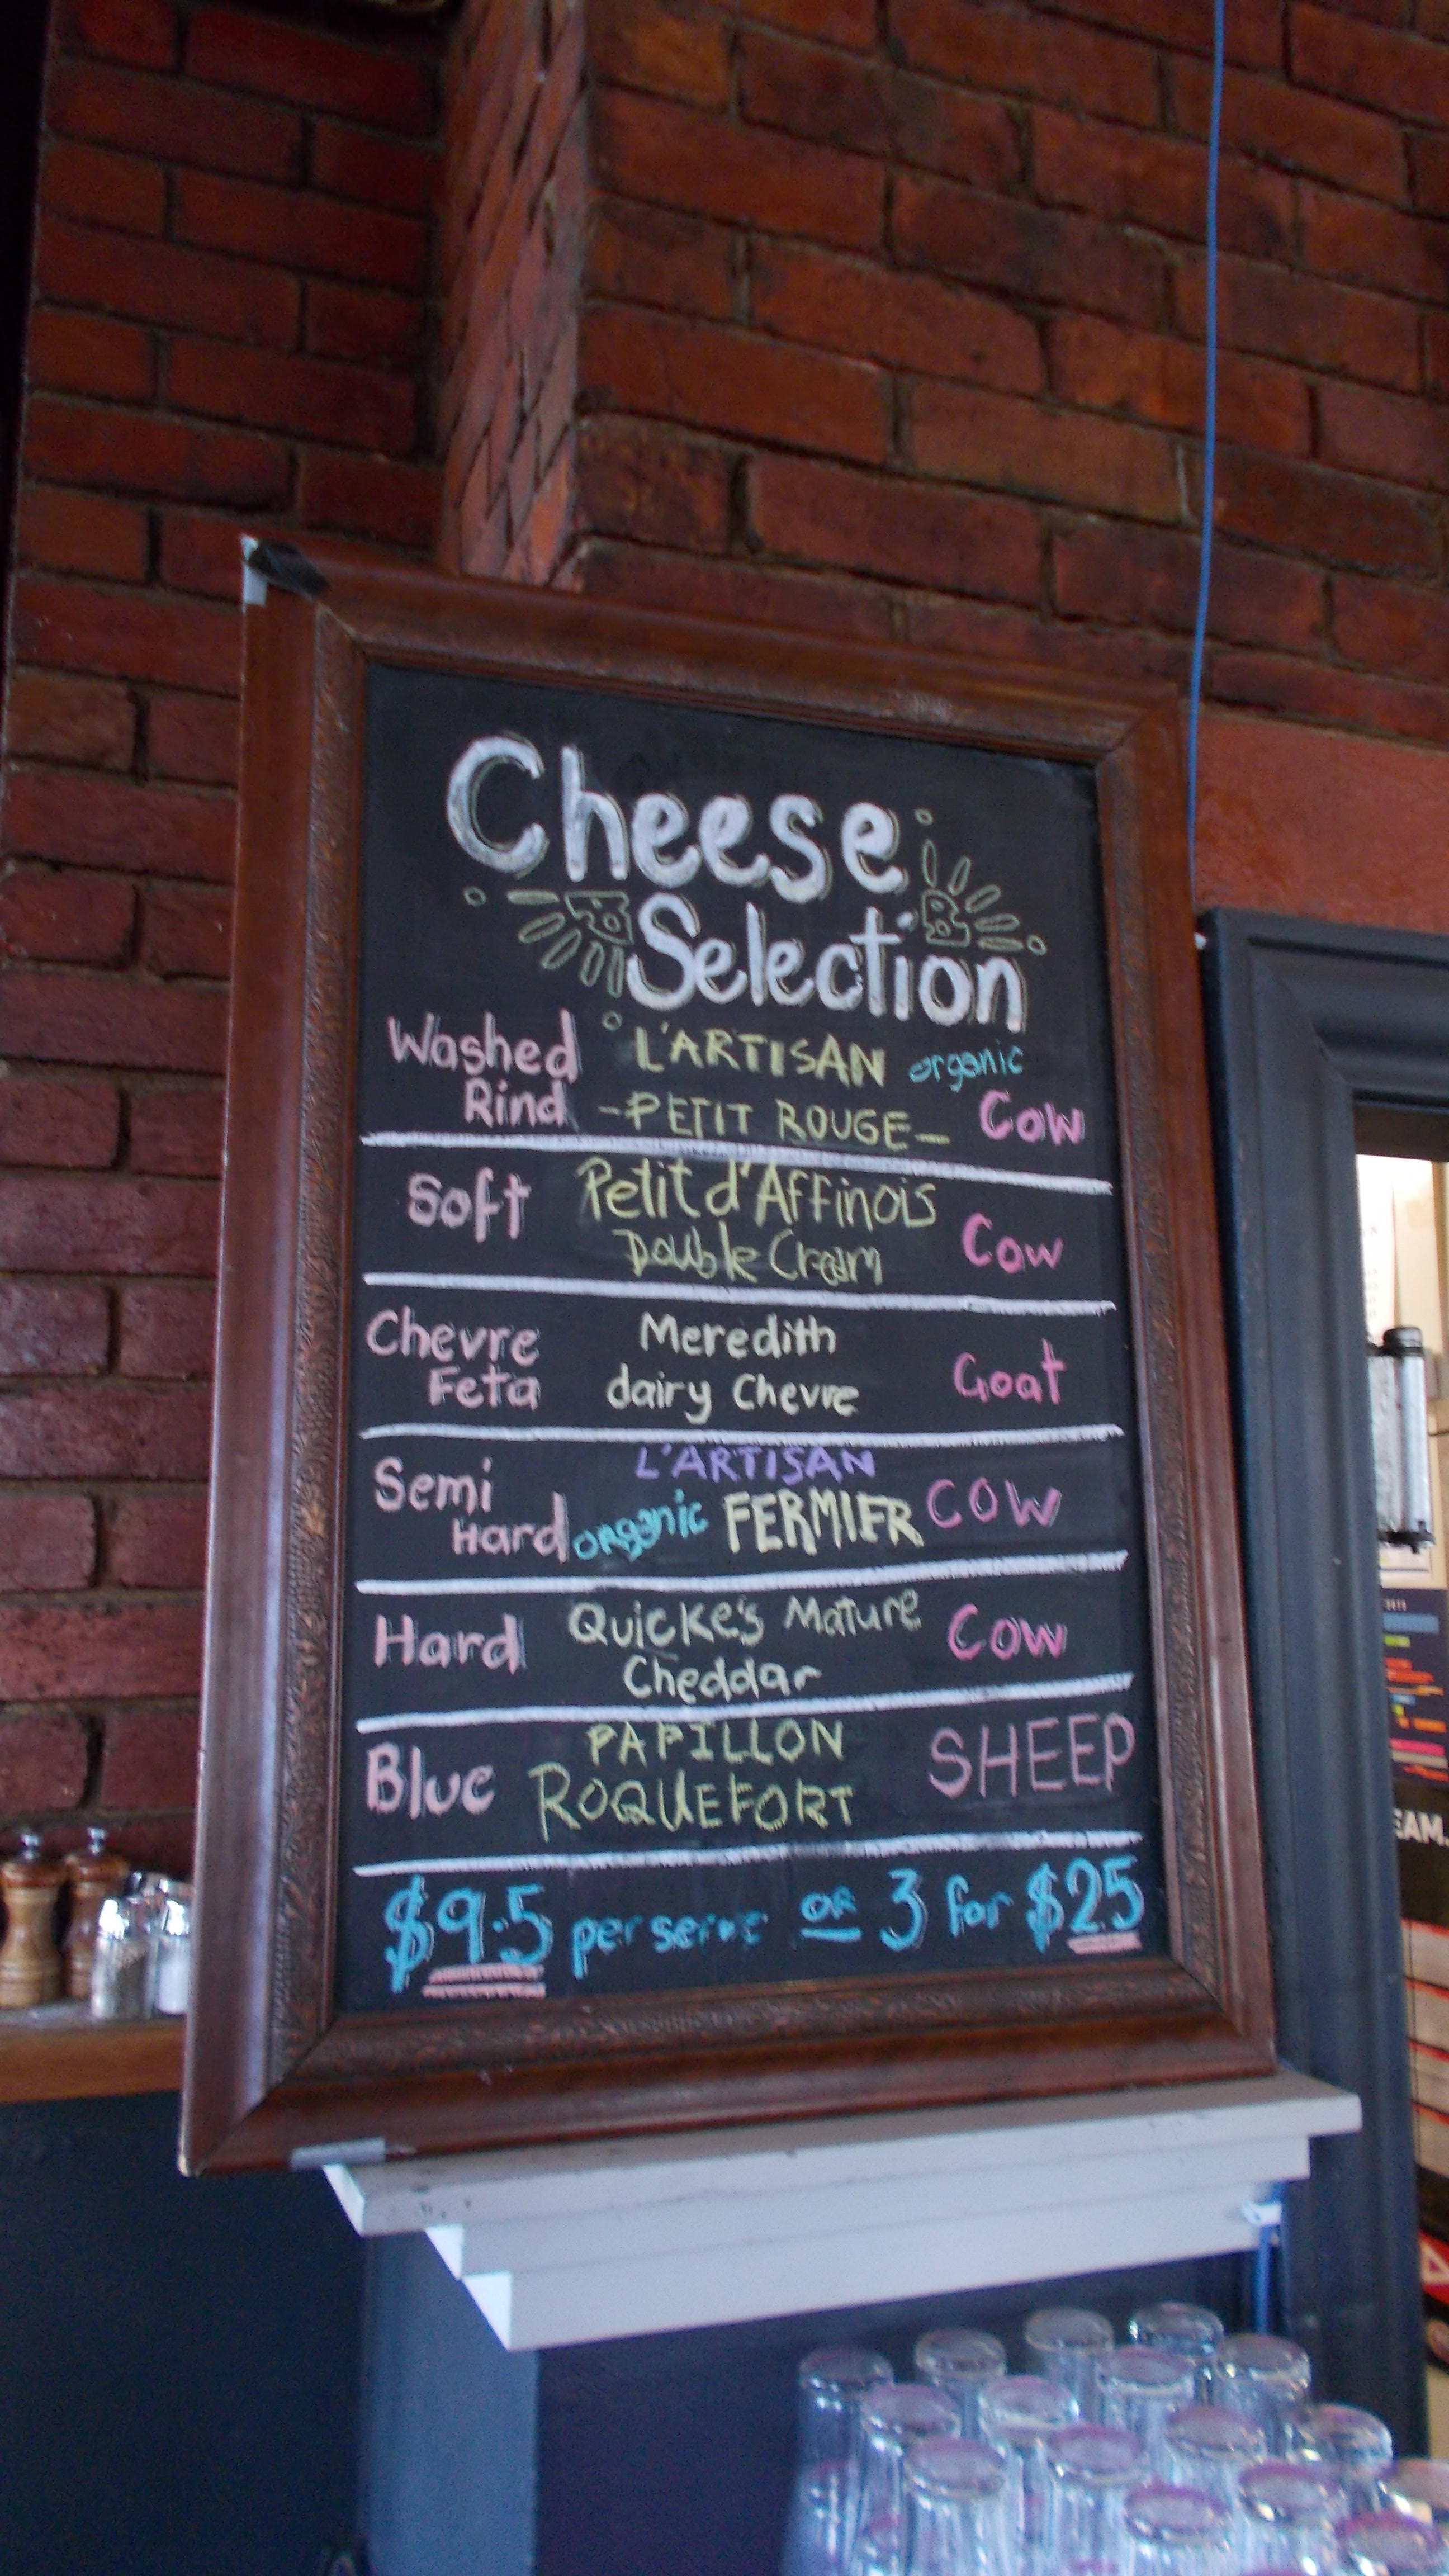 Cheese
Selection
Washed L'ARTISAN organic
Rind -PETIT ROUGE- Cow
Soft Petit d'Affinois
Double Cream Cow
Chevre Meredith
Feta dairy Chevre Goat
L'ARTISAN
Semi
Hard organic FERMIER COW
Hard Quicke's Mature Cow
Cheddar
PAPILLON SHEEP
Blue ROQUEFORT
$9.5 per serve or 3 for $25